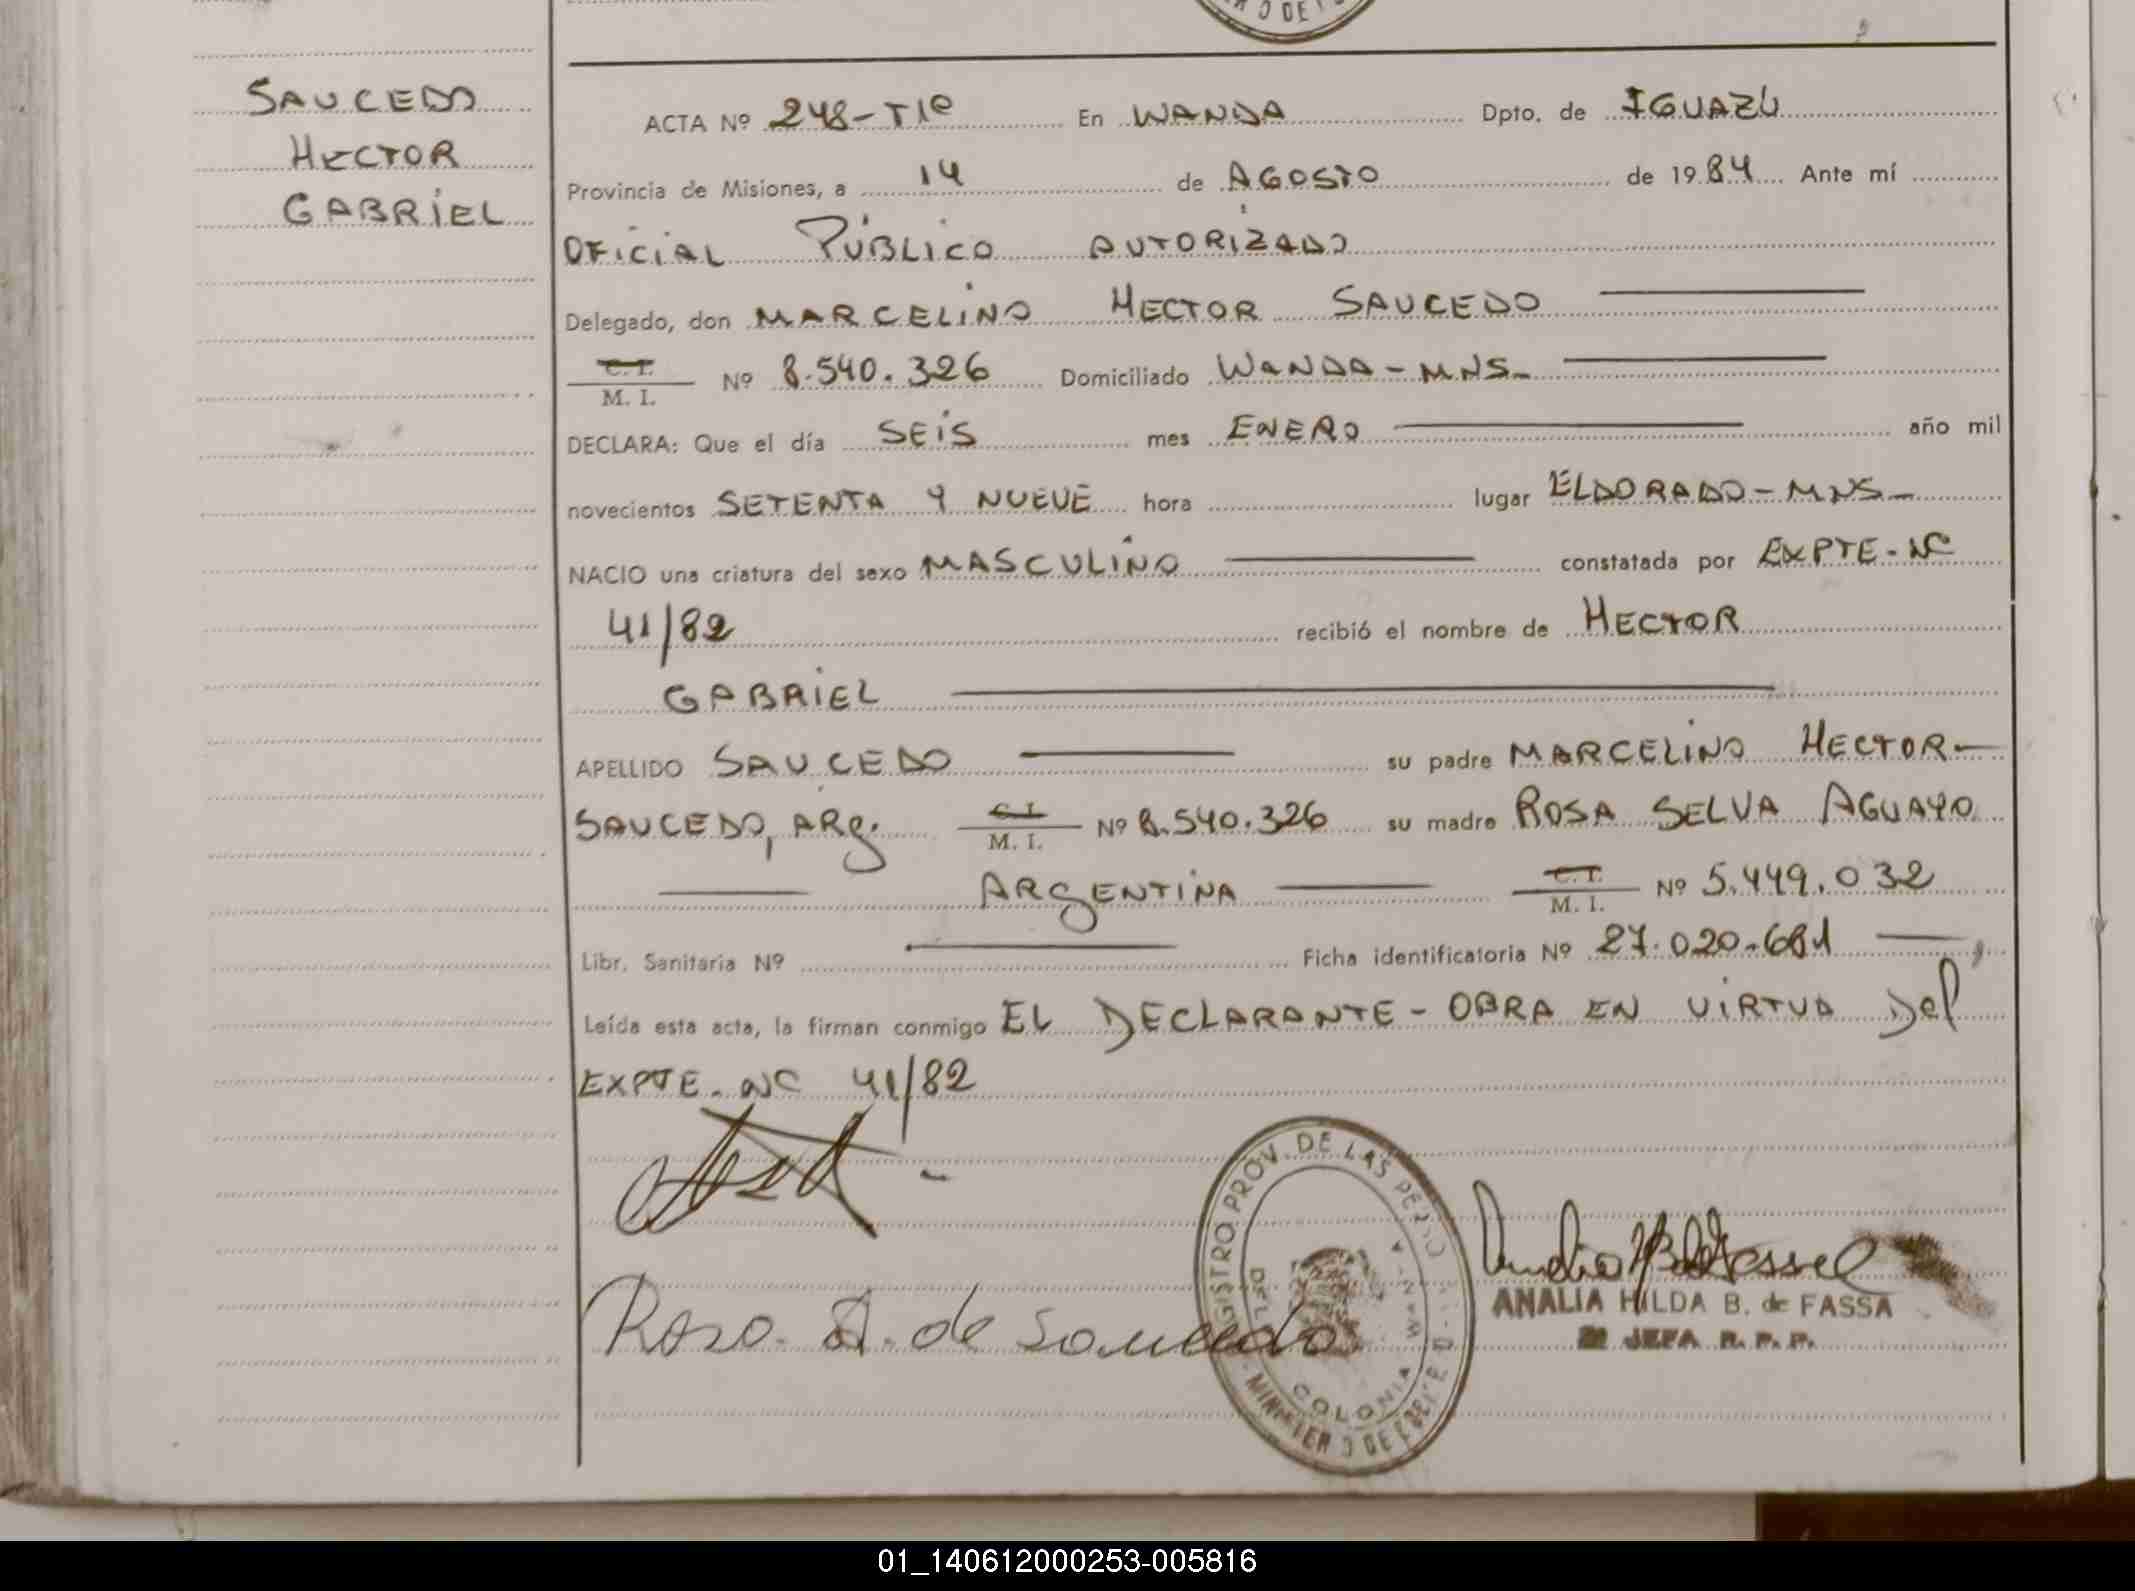 SAUCEDO
HECTOR
GABRIEL
ACTA Nº 248-TIº En WANDA Dpto. de IGUAZÚ
Provincia de Misiones, a 14 de AGOSTO de 1984 Ante mí
OFICIAL PÚBLICO AUTORIZADO
Delegado, don MARCELINO HECTOR SAUCEDO
C. I.
M. I. Nº 8.540.326 Domiciliado WANDA-MNS-
DECLARA: Que el día SEIS mes ENERO año mil
novecientos SETENTA Y NUEVE hora lugar ELDORADO-MNS-
NACIO una criatura del sexo MASCULINO constatada por EXPTE-Nº
41/82 recibió el nombre de HECTOR
GABRIEL
APELLIDO SAUCEDO su padre MARCELINO HECTOR-
SAUCEDO, ARg. C. I. M. I. Nº 8.540.326 su madre ROSA SELVA AGUAYO
ARgENTINA C. I. M. I. Nº 5.449.032
Libr. Sanitaria Nº Ficha identificatoria Nº 27.020.681
Leída esta acta, la firman conmigo EL DECLARANTE-OBRA EN VIRTUD Del
EXPTE. Nº 41/82
Rosa A. de Saucedo
REGISTRO PROV. DE LAS
COLONIA WANDA
ANALIA HILDA B. de FASSA
JEFA R. P. P.
01_140612000253-005816